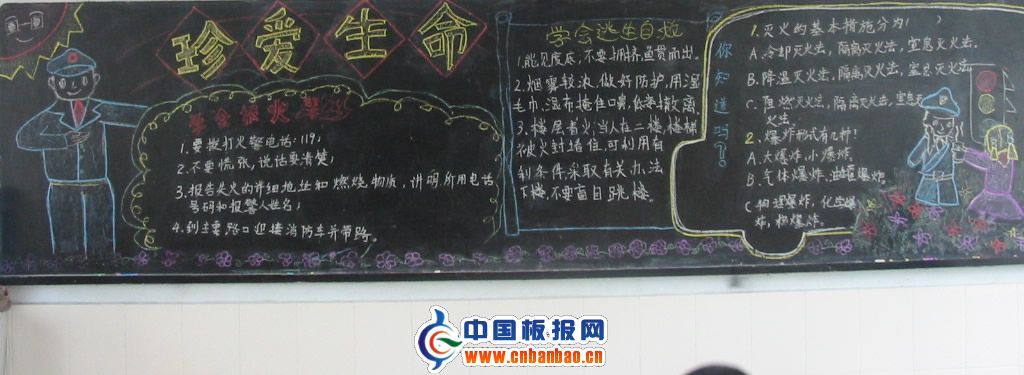 珍爱生命
学会报火警
1.要拨打火警电话:119;
2.不要慌张,说话要清楚;
3.报告失火的详细地址和燃烧物质,讲明所用电话
号码和报警人姓名;
4.到主要路口迎接消防车并带路。
学会逃生自救
1.能见度底,不要拥挤,鱼贯而出。
2.烟雾较浓,做好防护,用湿
毛巾,湿布掩住口鼻,低姿撤离
3.楼层着火,当人在二楼,楼梯
被火封堵住,可利用有
利条件采取有关办法
下楼,不要盲目跳楼。
你知道吗?
1.灭火的基本措施分为( )
A.冷却灭火法,隔离灭火法,窒息灭火法。
B.降温灭火法,隔离灭火法,窒息灭火法。
C.阻燃灭火法,隔离灭火法,窒息灭
火法。
2.爆炸形式有几种?
A.大爆炸,小爆炸
B.气体爆炸,油罐爆炸
C物理爆炸,化学爆
炸,核爆炸
中国板报网
www.cnbanbao.cn